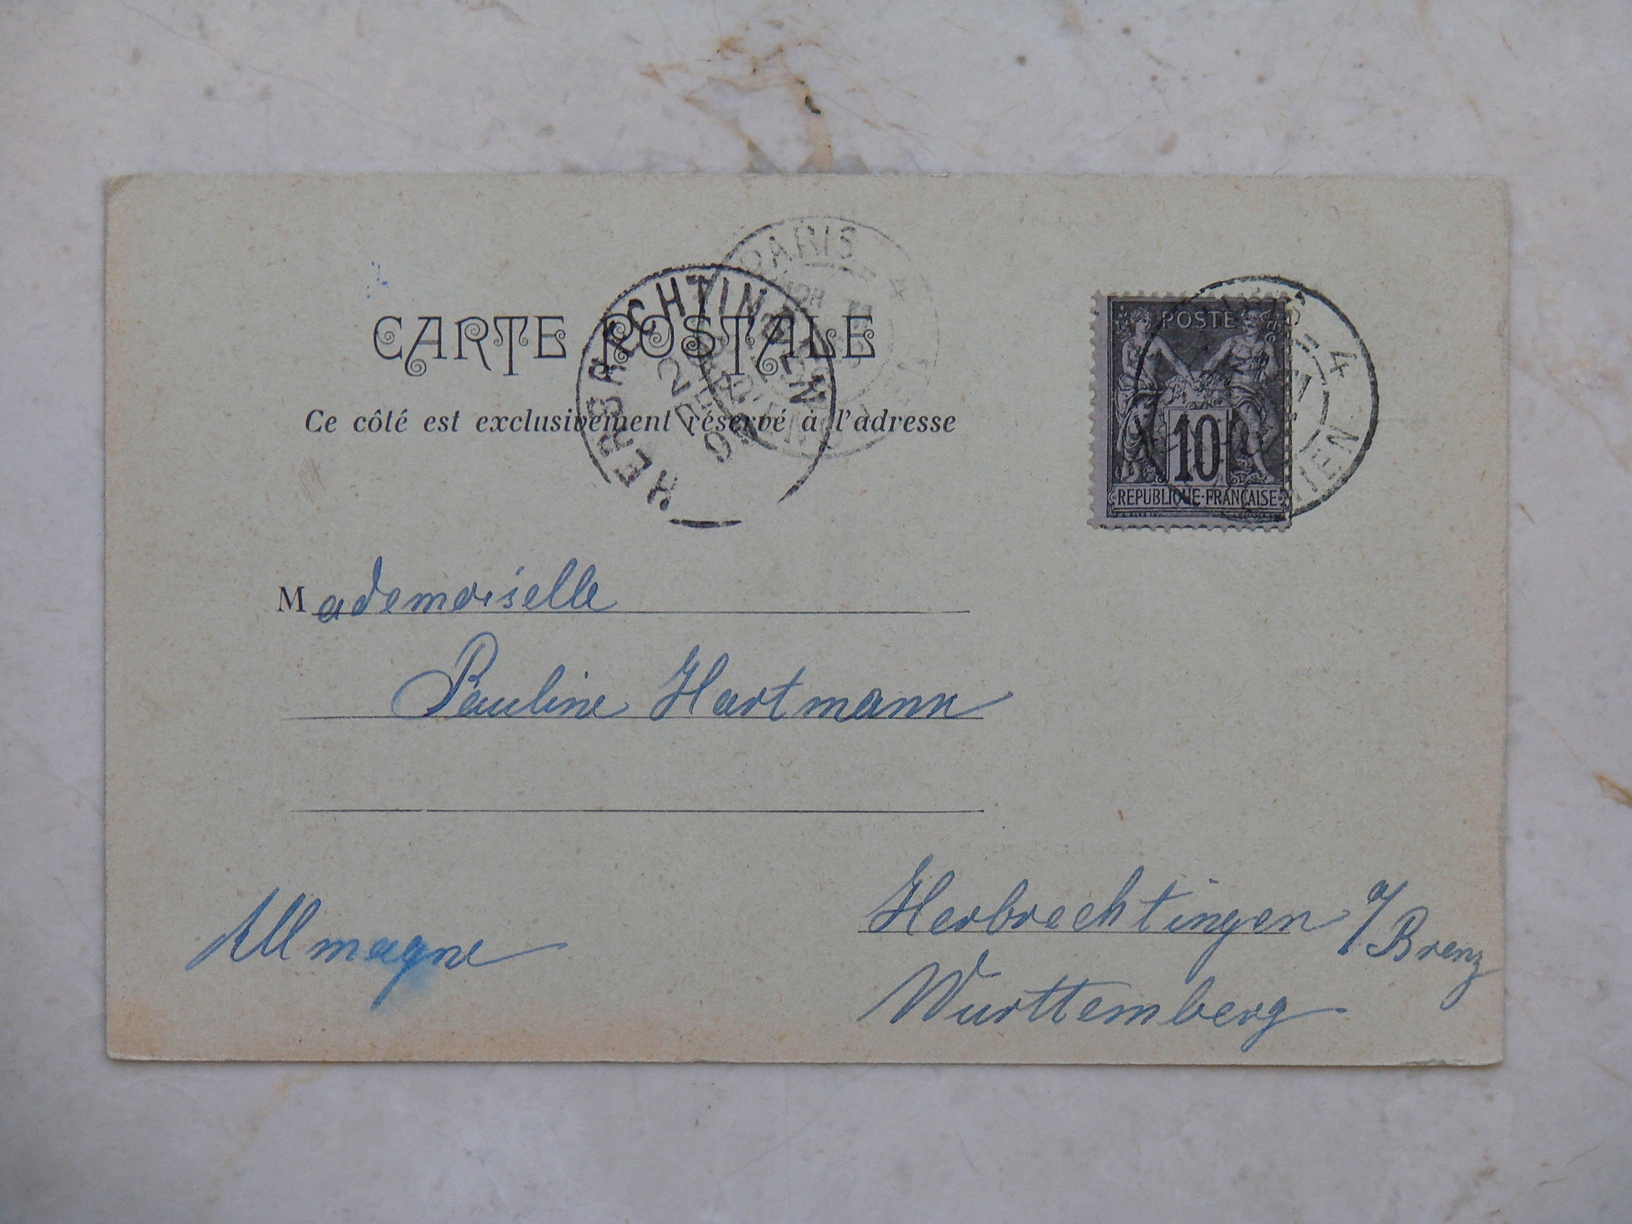 PARIS - 4
CARTE POSTALE
Ce côté est exclusivement réservé à l'adresse
POSTE
10
REPUBLIQUE FRANÇAISE
Mademoiselle
Pauline Hartmann
Allmagne
Herbrechtingen a/Brenz
Wurttemberg